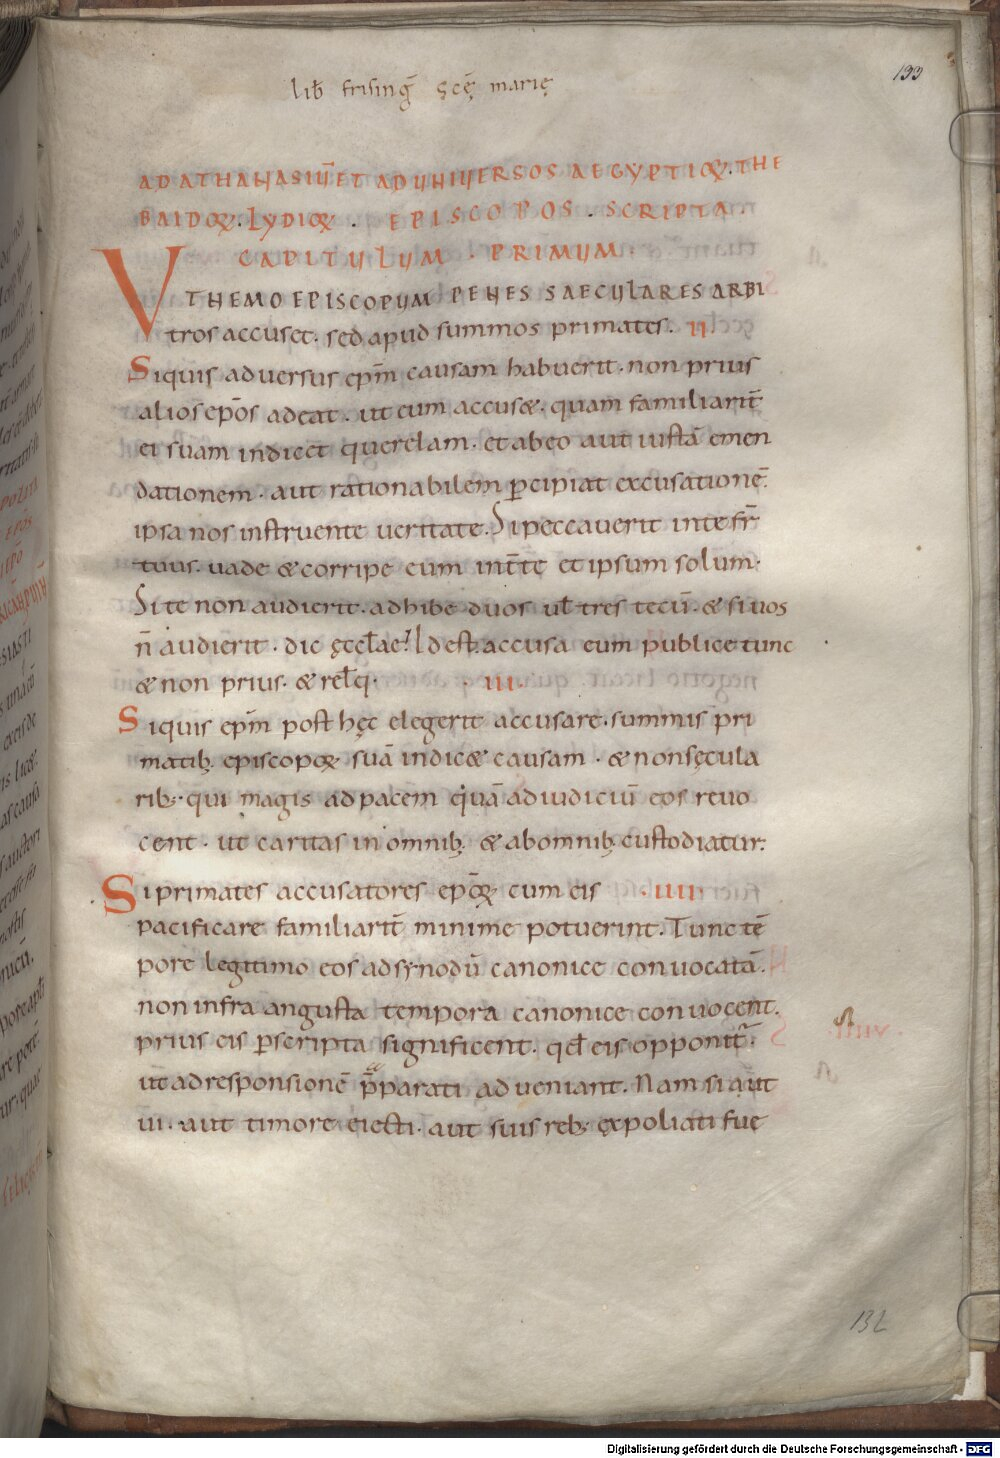 133
lib̅ frising̅ sc̅ę marię
AD ATHANASIU̅ ET AD UNIUERSOS AEGYPTIOꝜ. THE
BAIDOꝜ. LYDIOꝜ . EPISCOPOS . SCRIPTA .
CAPITULUM . PRIMUM .
VT HEMO EPISCOPUM PENES SAECULARES ARBI
tros accuset. sed apud summos primates. II
Siquis aduersus ep̅m causam habuerit. non prius
alios ep̅os adeat. ut eum accuset. quam familiarit̅
ei suam indicet querelam. et ab eo aut iusta̅ emen
dationem. aut rationabilem ꝑcipiat excusatione̅.
ipsa nos instruente ueritate. Si peccauerit in te fr̅
tuus. uade & corripe eum int̅ te et ipsum solum.
Si te non audierit. adhibe duos ul̅ tres tecu̅. & si uos
n̅ audierit. dic ęccl̅ae. Id est. accusa eum publice tunc
& non prius. & rel̅q. III.
Siquis ep̅m post hęc elegerit accusare. summis pri
matib; episcopoꝝ sua̅ indic& causam. & non sęcula
rib; qui magis ad pacem qua̅ ad iudiciu̅ eos reuo
cent. ut caritas in omnib; & ab omnib; custodiatur.
Si primates accusatores ep̅oꝝ cum eis .IIII
pacificare familiarit̅ minime potuerint. Tunc te̅
pore legitimo eos ad synodu̅ canonice conuocata̅.
non infra angusta tempora canonice conuocent.
prius eis ꝑ scripta significent. qd̅ eis opponit̅.
ut ad responsione̅ p̅parati adueniant. Nam si aut
ui. aut timore eiecti. aut suis reb; expoliati fue
132
Digitalisierung gefördert durch die Deutsche Forschungsgemeinschaft - DFG